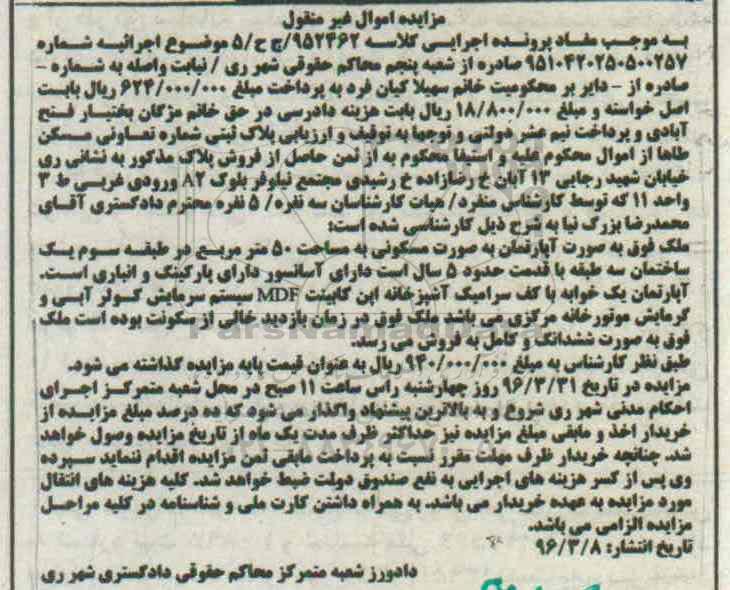 مزایده اموال غیر منقول
به موجب مفاد پرونده اجرایی کلاسه ۹۵۲۴۶۲/ج ح/۵ موضوع اجرائیه شماره
۹۵۱۰۴۲۰۲۵۰۵۰۰۲۵۷ صادره از شعبه پنجم محاکم حقوقی شهر ری / نیابت واصله به شماره –
صادره از – دایر بر محکومیت خانم سهیلا کیان فرد به پرداخت مبلغ ۶۲۴/۰۰۰/۰۰۰ ریال بابت
اصل خواسته و مبلغ ۱۸/۸۰۰/۰۰۰ ریال بابت هزینه دادرسی در حق خانم مژگان بختیار فتح
آبادی و پرداخت نیم عشر دولتی و توجها به توقیف و ارزیابی پلاک ثبتی شماره تعاونی مسکن
طاها از اموال محکوم علیه و استیفا محکوم به از ثمن حاصل از فروش پلاک مذکور به نشانی ری
خیابان شهید رجایی ۱۳ آبان خ رضازاده خ رشیدی مجتمع نیلوفر بلوک A۲ ورودی غربی ط ۳
واحد ۱۱ که توسط کارشناس منفرد/ هیات کارشناسان سه نفره/ ۵ نفره محترم دادگستری آقای
محمدرضا بزرگ نیا به شرح ذیل کارشناسی شده است:
ملک فوق به صورت آپارتمان به صورت مسکونی به مساحت ۵۰ متر مربع در طبقه سوم یک
ساختمان سه طبقه با قدمت حدود ۵ سال است دارای آسانسور دارای پارکینگ و انباری است.
آپارتمان یک خوابه با کف سرامیک آشپزخانه اپن کابینت MDF سیستم سرمایش کولر آبی و
گرمایش موتورخانه مرکزی می باشد ملک فوق در زمان بازدید خالی از سکونت بوده است ملک
فوق به صورت ششدانگ و کامل به فروش می رسد.
طبق نظر کارشناس به مبلغ ۹۴۰/۰۰۰/۰۰۰ ریال به عنوان قیمت پایه مزایده گذاشته می شود.
مزایده در تاریخ ۹۶/۳/۳۱ روز چهارشنبه راس ساعت ۱۱ صبح در محل شعبه متمرکز اجرای
احکام مدنی شهر ری شروع و به بالاترین پیشنهاد واگذار می شود که ده درصد مبلغ مزایده از
خریدار اخذ و مابقی مبلغ مزایده نیز حداکثر ظرف مدت یک ماه از تاریخ مزایده وصول خواهد
شد. چنانچه خریدار ظرف مهلت مقرر نسبت به پرداخت مابقی ثمن مزایده اقدام ننماید سپرده
وی پس از کسر هزینه های اجرایی به نفع صندوق دولت ضبط خواهد شد. کلیه هزینه های انتقال
مورد مزایده به عهده خریدار می باشد. به همراه داشتن کارت ملی و شناسنامه در کلیه مراحل
مزایده الزامی می باشد.
تاریخ انتشار: ۹۶/۳/۸
دادورز شعبه متمرکز محاکم حقوقی دادگستری شهر ری